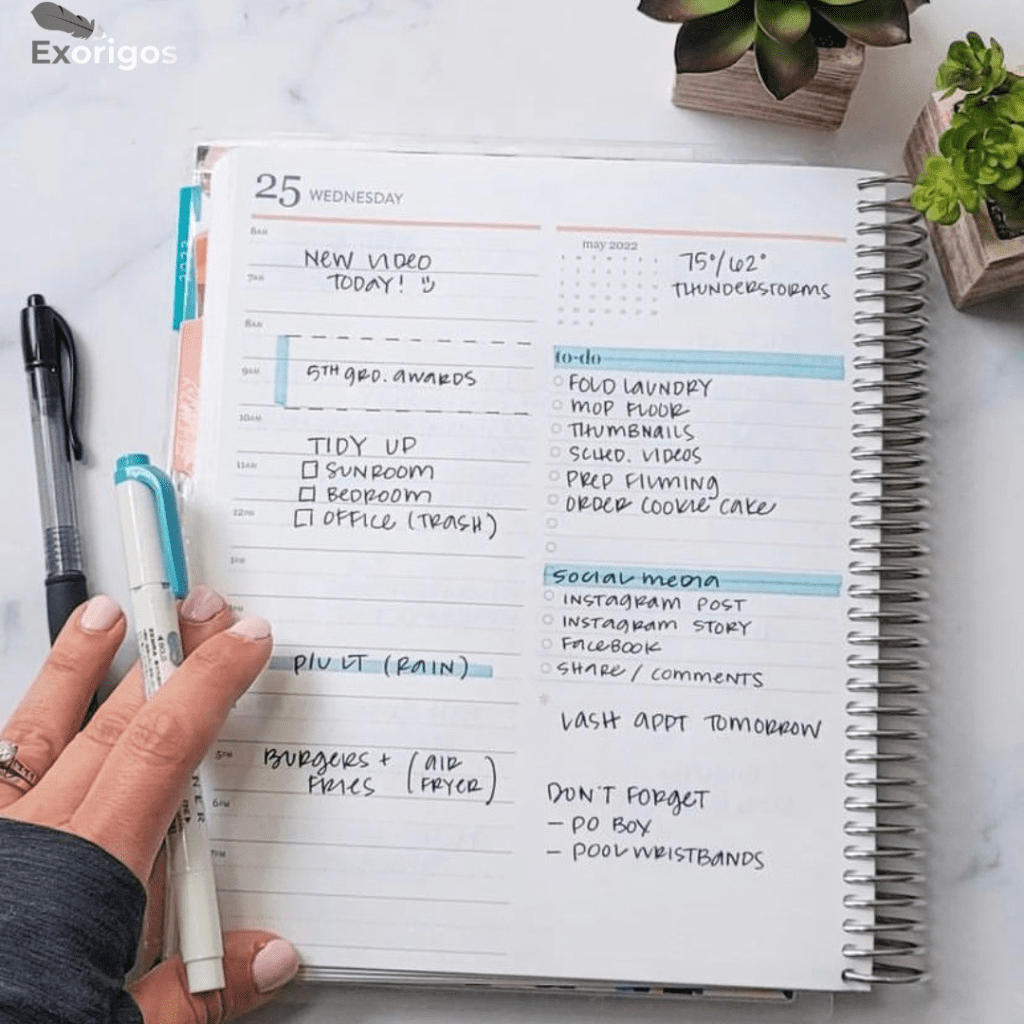 Exorigos
25 WEDNESDAY
6AM
NEW VIDEO
TODAY!
7AM
8AM
9AM
5TH GRD. AWARDS
10AM
TIDY UP
11AM
SUNROOM
BEDROOM
12PM
OFFICE (TRASH)
1PM
P/U LT (RAIN)
5PM
BURGERS + (AIR
FRIES FRYER)
6PM
7PM
may 2022
75°/62°
THUNDERSTORMS
to-do
FOLD LAUNDRY
MOP FLOOR
THUMBNAILS
SCHED. VIDEOS
PREP FILMING
ORDER COOKIE CAKE
SOCIAL MEDIA
INSTAGRAM POST
INSTAGRAM STORY
FACEBOOK
SHARE / COMMENTS
LASH APPT TOMORROW
DON'T FORGET
- PO BOX
- POOL WRISTBANDS
2022